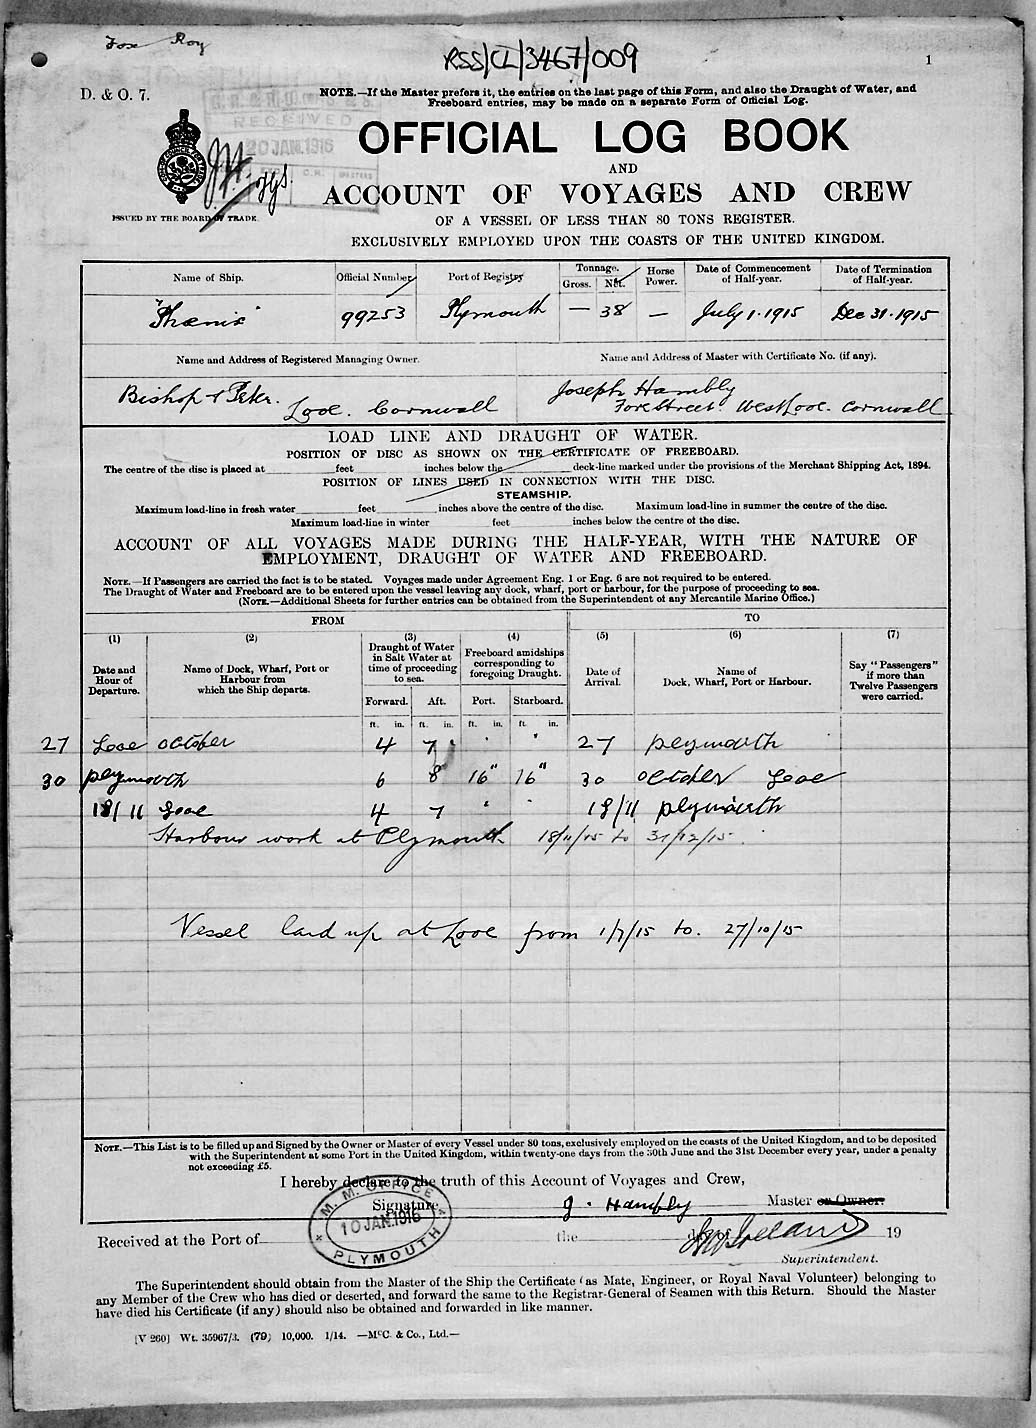 Fox Roy
RSS/CL/3467/009
1
D. & O. 7.
NOTE.—If the Master prefers it, the entries on the last page of this Form, and also the Draught of Water, and
Freeboard entries, may be made on a separate Form of Official Log.
RECEIVED
20 JAN. 1916
OFFICIAL LOG BOOK
AND
ACCOUNT OF VOYAGES AND CREW
ISSUED BY THE BOARD OF TRADE.
OF A VESSEL OF LESS THAN 80 TONS REGISTER.
EXCLUSIVELY EMPLOYED UPON THE COASTS OF THE UNITED KINGDOM.
Name of Ship. Official Number Port of Registry Tonnage. Gross. Net. Horse Power. Date of Commencement of Half-year. Date of Termination of Half-year.
"Phœnix" 99253 Plymouth — 38 — July 1·1915 Dec 31·1915
Name and Address of Registered Managing Owner. Name and Address of Master with Certificate No. (if any).
Bishop & Peter. Looe. Cornwall Joseph Hambly
Fore Street. West Looe. Cornwall
LOAD LINE AND DRAUGHT OF WATER.
POSITION OF DISC AS SHOWN ON THE CERTIFICATE OF FREEBOARD.
The centre of the disc is placed at feet inches below the deck-line marked under the provisions of the Merchant Shipping Act, 1894.
POSITION OF LINES USED IN CONNECTION WITH THE DISC.
STEAMSHIP.
Maximum load-line in fresh water feet inches above the centre of the disc. Maximum load-line in summer the centre of the disc.
Maximum load-line in winter feet inches below the centre of the disc.
ACCOUNT OF ALL VOYAGES MADE DURING THE HALF-YEAR, WITH THE NATURE OF
EMPLOYMENT, DRAUGHT OF WATER AND FREEBOARD.
NOTE.—If Passengers are carried the fact is to be stated. Voyages made under Agreement Eng. 1 or Eng. 6 are not required to be entered.
The Draught of Water and Freeboard are to be entered upon the vessel leaving any dock, wharf, port or harbour, for the purpose of proceeding to sea.
(NOTE.—Additional Sheets for further entries can be obtained from the Superintendent of any Mercantile Marine Office.)
FROM TO
(1) (2) (3) (4) (5) (6) (7)
Date and Hour of Departure. Name of Dock, Wharf, Port or Harbour from which the Ship departs. Draught of Water in Salt Water at time of proceeding to sea. Freeboard amidships corresponding to foregoing Draught. Date of Arrival. Name of Dock, Wharf, Port or Harbour. Say "Passengers" if more than Twelve Passengers were carried.
Forward. Aft. Port. Starboard.
ft. in. ft. in. ft. in. ft. in.
27 Looe October 4 7 27 plymouth
30 plymouth 6 8 16" 16" 30 october Looe
18/11 Looe 4 7 18/11 plymouth
Harbour work at Plymouth 18/11/15 to 31/12/15.
Vessel laid up at Looe from 1/7/15 to. 27/10/15
NOTE.—This List is to be filled up and Signed by the Owner or Master of every Vessel under 80 tons, exclusively employed on the coasts of the United Kingdom, and to be deposited
with the Superintendent at some Port in the United Kingdom, within twenty-one days from the 30th June and the 31st December every year, under a penalty
not exceeding £5.
I hereby declare to the truth of this Account of Voyages and Crew,
Signature J. Hambly Master or Owner.
M. M. OFFICE
10 JAN. 1916
PLYMOUTH
Received at the Port of the 19
Superintendent.
The Superintendent should obtain from the Master of the Ship the Certificate (as Mate, Engineer, or Royal Naval Volunteer) belonging to
any Member of the Crew who has died or deserted, and forward the same to the Registrar-General of Seamen with this Return. Should the Master
have died his Certificate (if any) should also be obtained and forwarded in like manner.
[V 260] Wt. 35967/3. (79) 10,000. 1/14. —McC. & Co., Ltd.—